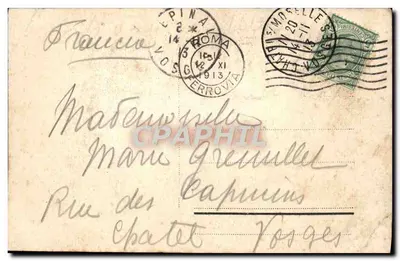 Francia
EPINAL
VOSGES
2 *
14
ROMA
XI
1913
FERROVIA
MOSELLE
20
14-11
13
Mademoiselle
Marie Grenuillet
Capucins
Rue des
Chatel Vosges